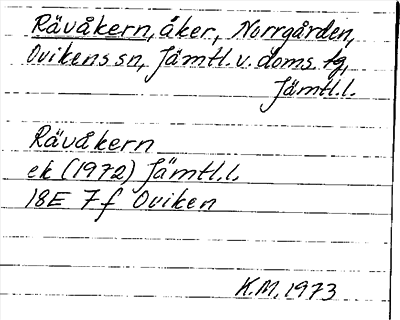 Rävåkern, åker, Norrgården,
Ovikens sn, Jämtl. v. doms. tg,
Jämtl.l.
Rävåkern
ek (1972) Jämtl.l.
18E 7f Oviken
K.M. 1973